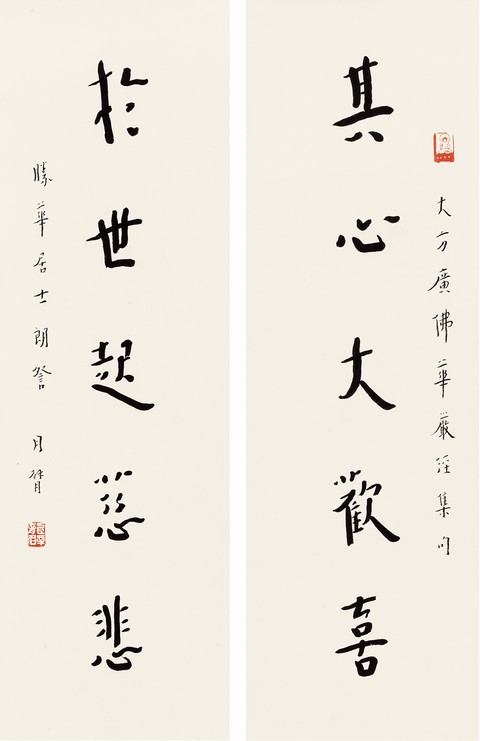 大方廣佛華嚴經集句
其心大歡喜
於世起慈悲
勝華居士朗詧
月臂